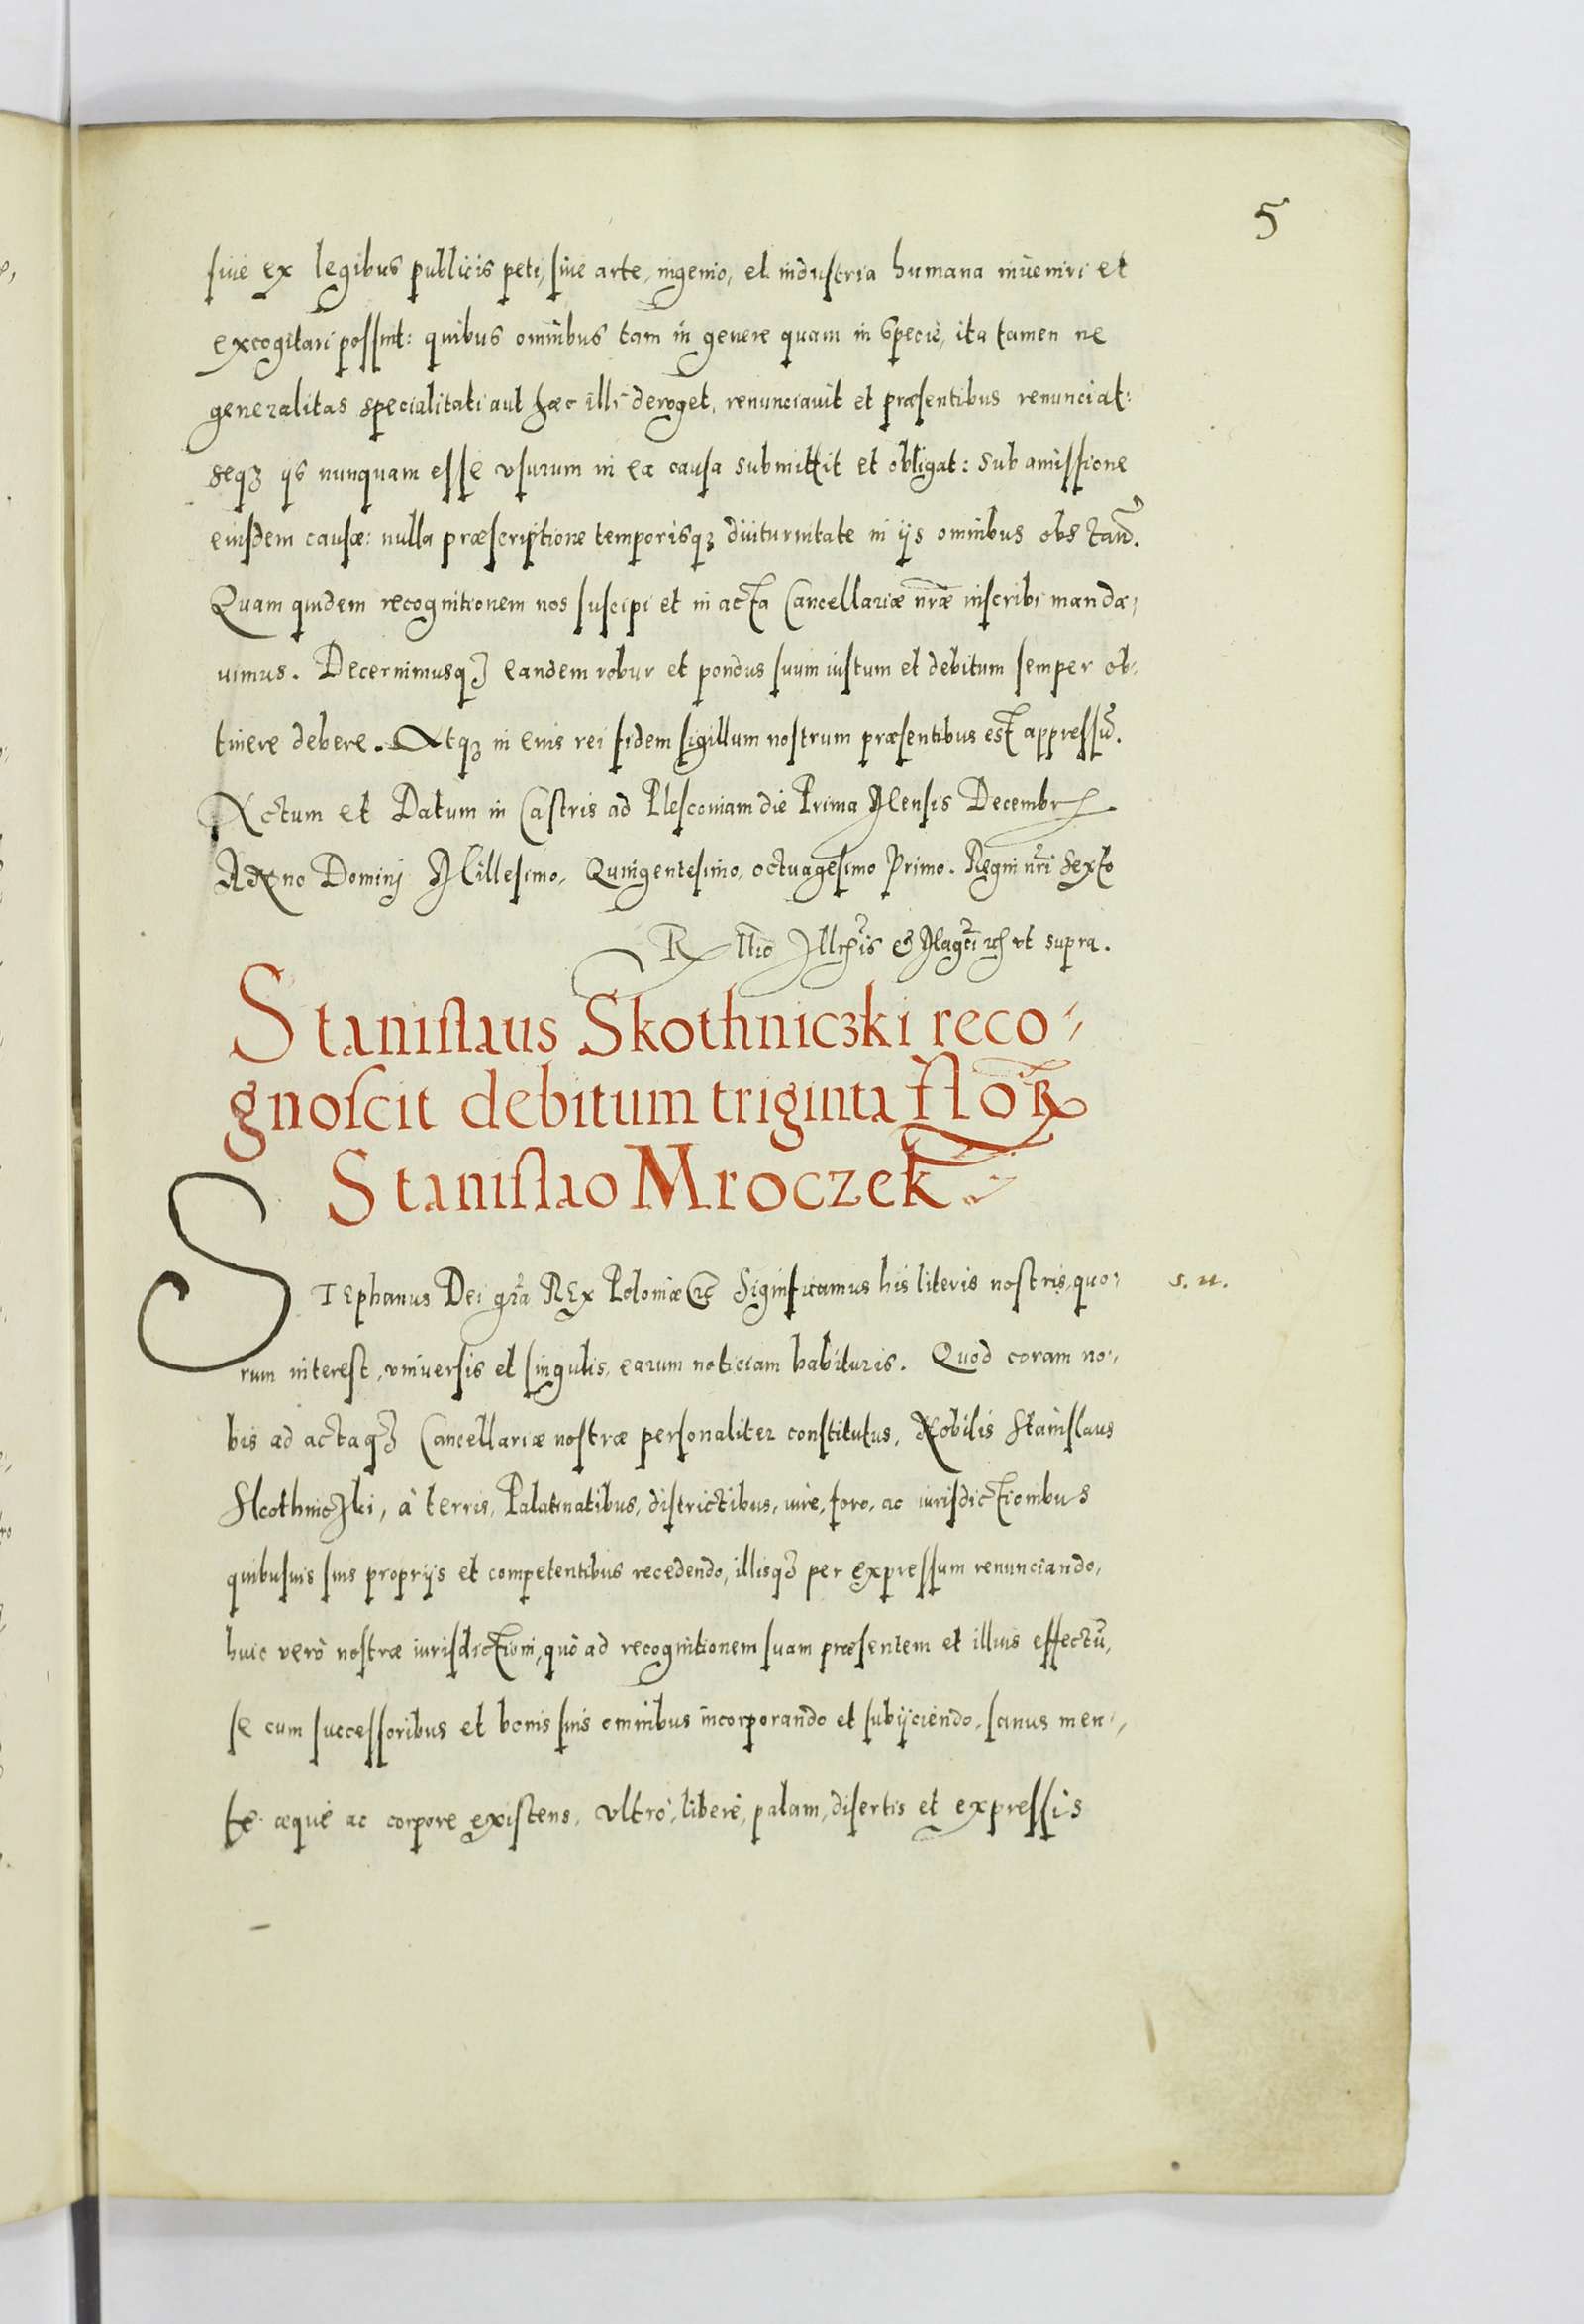 5
siue ex legibus publicis peti, siue arte, ingenio, et industria humana inueniri et
excogitari possint: quibus omnibus tam in genere quam in specie, ita tamen ne
generalitas specialitati aut haec illi deroget, renunciauit et præsentibus renunciat:
seqꝫ ijs nunquam esse vsurum in ea causa submittit et obligat: sub amissione
eiusdem causæ: nulla præscriptione temporisqꝫ diuturnitate in ijs omnibus obstan̄.
Quam quidem recognitionem nos suscipi et in acta Cancellariæ nr̄æ inscribi manda,
uimus. Decernimusqꝫ eandem robur et pondus suum iustum et debitum semper ob,
tinere debere. Atqꝫ in eius rei fidem sigillum nostrum præsentibus est appressū.
Actum et Datum in Castris ad Plesconiam die Prima Mensis Decembr
Anno Dominj Millesimo, Quingentesimo, octuagesimo Primo. Regni nr̄i Sexto
ut supra.
Stanislaus Skothniczki reco,
gnoscit debitum triginta flo
Stanislao Mroczek
STEphanus Dei gr̄a REx Poloniæ etc̄ Significamus his literis nostris, quo,
s. n.
rum interest, vniuersis et singulis, earum noticiam habituris. Quod coram no,
bis ad actaqꝫ Cancellariæ nostræ personaliter constitutus, Nobilis Stanislaus
Skothniczki, à terris, Palatinatibus, districtibus, iure, foro, ac iurisdictionibus
quibusuis suis proprijs et competentibus recedendo, illisqꝫ per expressum renunciando,
huic verò nostræ iurisdictioni, quò ad recognitionem suam præsentem et illius effectū,
se cum successoribus et bonis suis omnibus incorporando et subijciendo, sanus men,
te æquè ac corpore existens, vltrò, liberè, palam, disertis et expressis